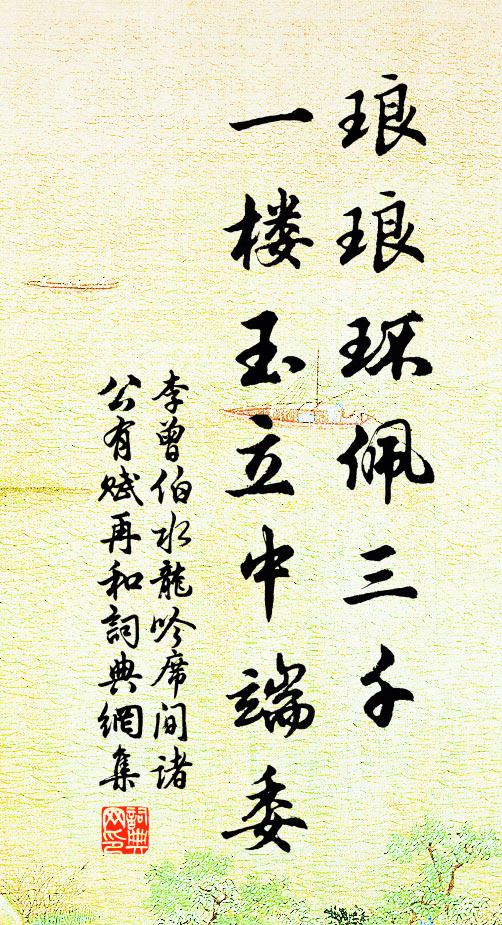 琅琅环佩三千
一楼玉立中端委
李曾伯水龍吟席间諸
公有赋再和詞典網集
詞典
网印